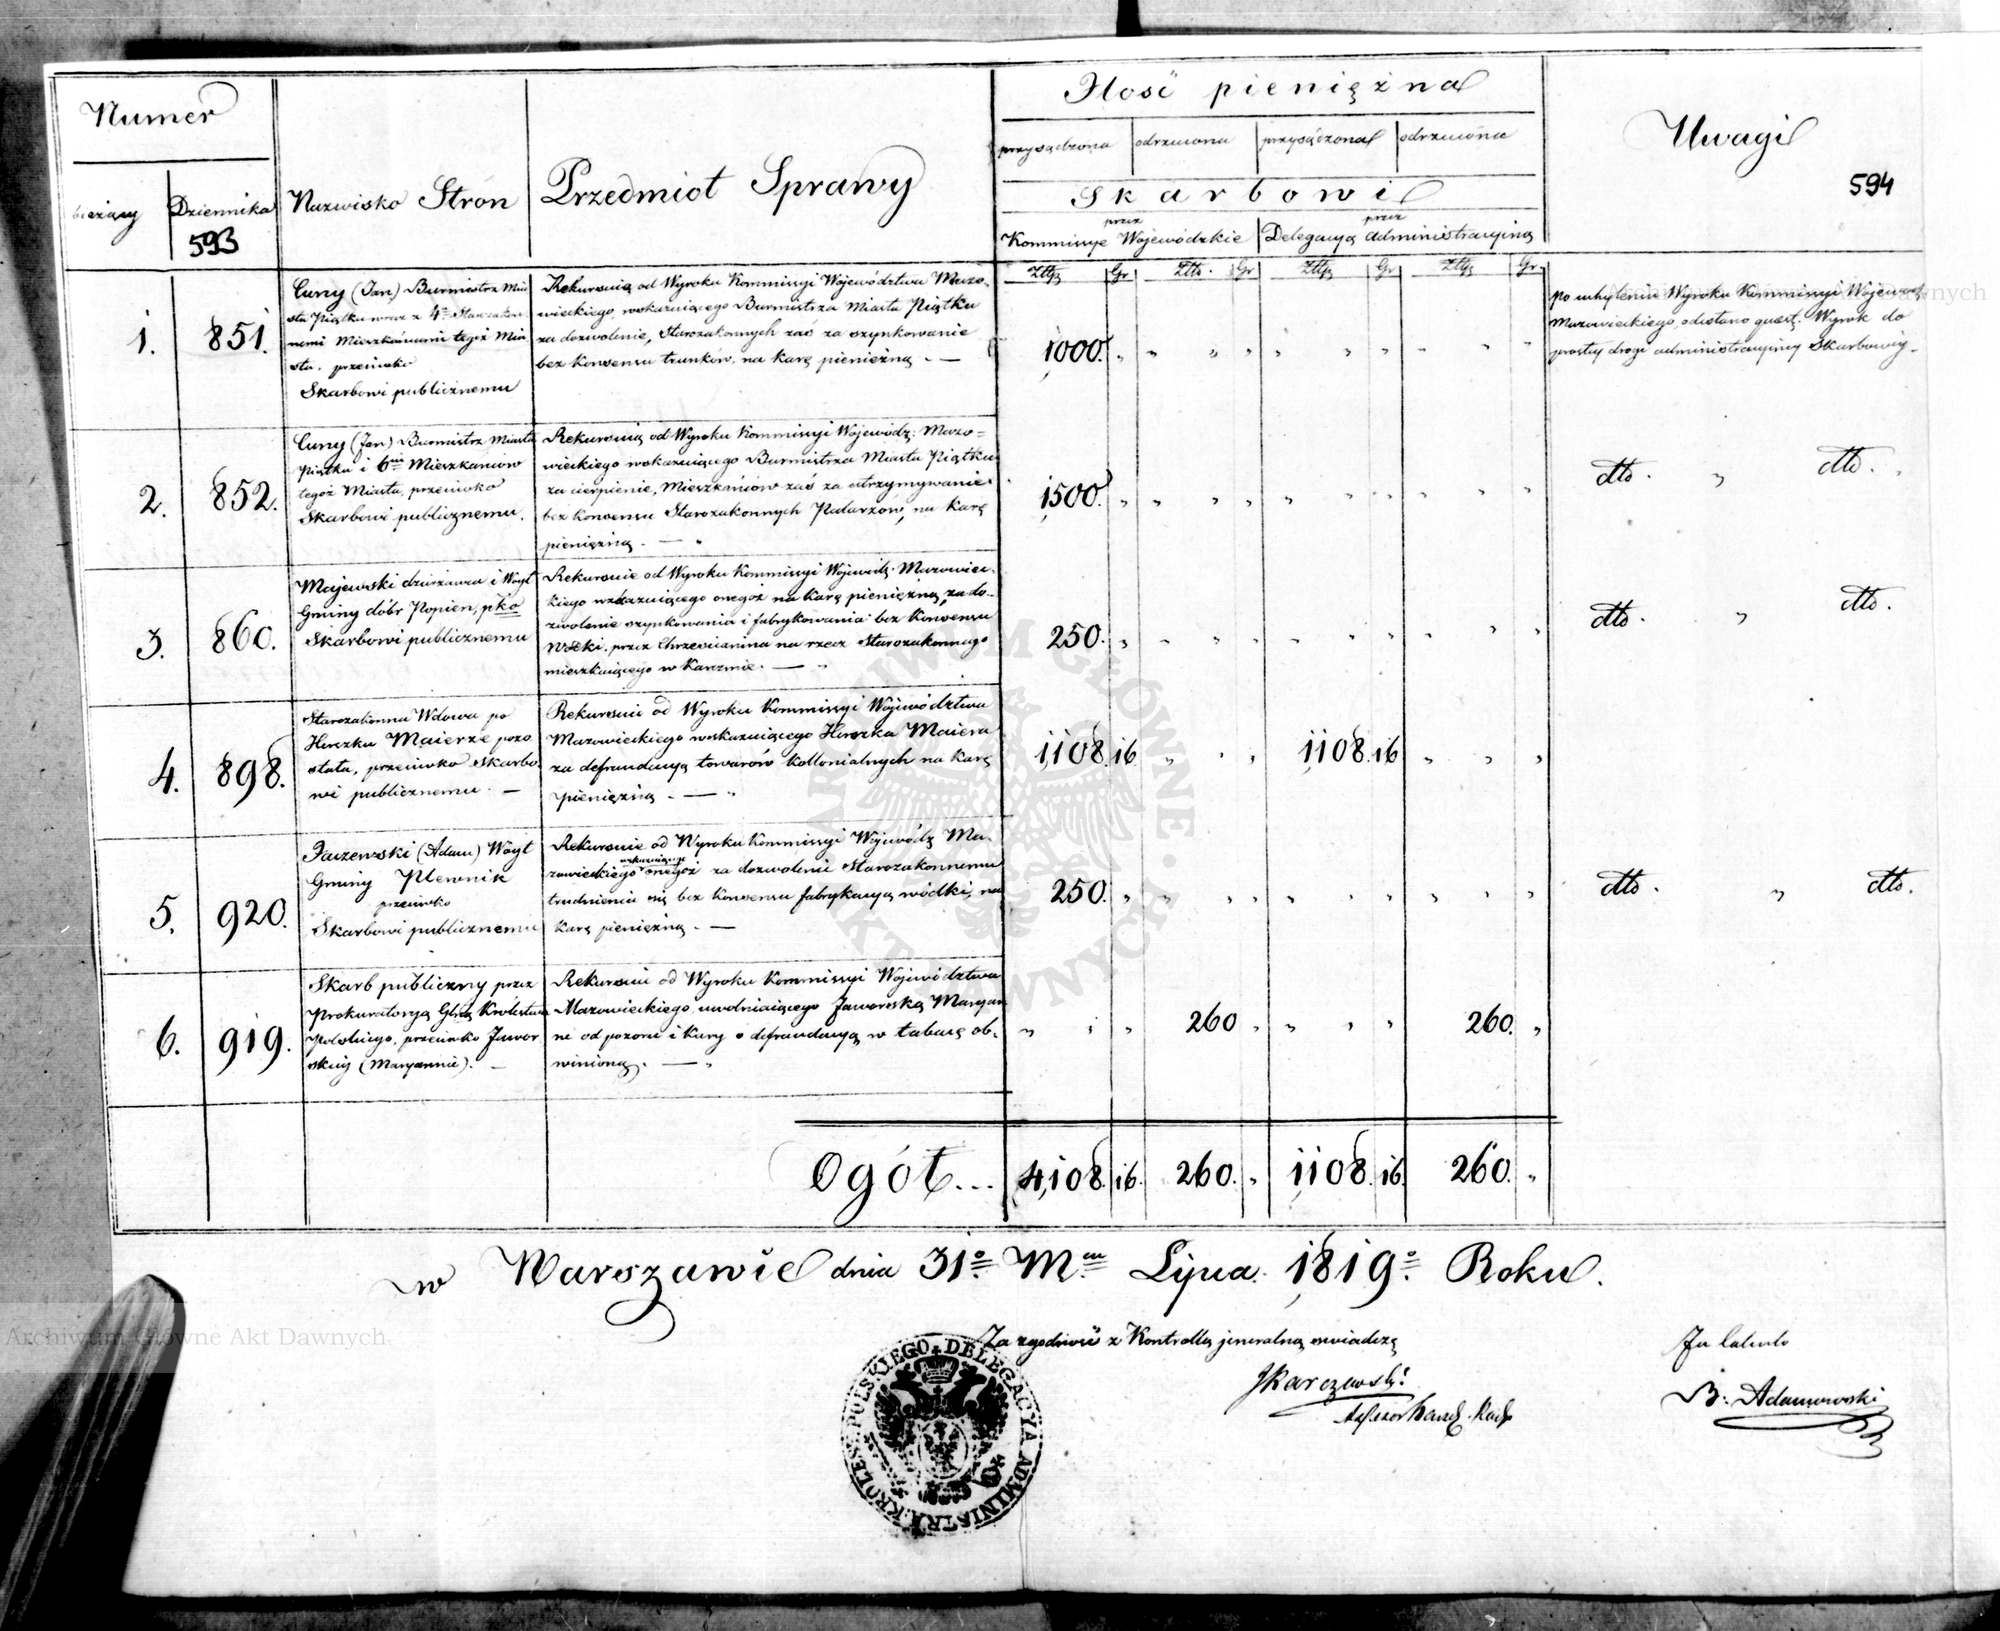 Numer
bieżący
Dziennika
593
Nazwisko Stron
Przedmiot Sprawy
Ilość pieniężna
przysądzona
odrzucona
przysądzona
odrzucona
Skarbowi
przez
Kommissye Wojewódzkie
przez
Delegacyą Administracyjną
Złtp
Gr
Złto.
Gr
Złtp
Gr
Złtp
Gr.
Uwagi
594
1.
851.
Cuny (Jan) Burmistrz Mia
sta Piątku wraz z 4ma Starozakon
nemi Mieszkańcami tegoż Mia
sta, przeciwko
Skarbowi publicznemu
Rekursuią od Wyroku Kommissyi Województwa Mazo-
wieckiego, wskazuiącego Burmistrza Miasta Piątku
za dozwolenie, Starozakonnych zaś za szynkowanie
bez konsensu trunków, na karę pieniężną. —
1000.
po uchyleniu Wyroku Kommissyi Wojewod.
Mazowieckiego, odesłano quaest. Wyrok do
prostey drogi administracyiney Skarbowey.
2.
852.
Cuny (Jan) Burmistrz Miasta
Piątku i 6ciu Mieszkańców
tegoż Miasta, przeciwko
Skarbowi publicznemu.
Rekursuią od Wyroku Kommissyi Wojewódz: Mazo=
wieckiego wskazuiącego Burmistrza Miasta Piątku
za cierpienie, Mieszkańców zaś za utrzymywanie
bez konsensu Starozakonnych Pacharzów, na karę
pieniężną. — „
1500.
dtto. „ dtto.
3.
860.
Majewski dzierżawca i Wóyt
Gminy dóbr Popien, pko
Skarbowi publicznemu
Rekursuie od Wyroku Kommissyi Wojewódz. Mazowiec-
kiego wskazuiącego onegoż na karę pieniężną, za do-
zwolenie szynkowania i fabrykowania bez Konsensu
Wódki, przez Chrześcianina na rzecz Starozakonnego
mieszkaiącego w Karczmie. — „
250.
dtto. „ dtto.
4.
898.
Starozakonna Wdowa po
Herszku Maierze pozo
stała, przeciwko Skarbo
wi publicznemu. —
Rekursuie od Wyroku Kommissyi Województwa
Mazowieckiego wskazuiącego Herszka Maiera
za defraudacyą towarów kollonialnych na karę
pieniężną. — „
1108. 16.
1108. 16
5.
920.
(Adam) Wóyt
Gminy Plewnik
przeciwko
Skarbowi publicznemu
Rekursuie od Wyroku Kommissyi Wojewódz Ma-
wskazuiącego
zowieckiego onegoż za dozwolenie Starozakonnemu
trudnienia się bez konsensu fabrykacyą wódki, na
karę pieniężną. —
250.
dtto. „ dtto.
6.
919.
Skarb publiczny przez
Prokuratoryą Glną Królestwa
Polskiego, przeciwko Jawor
skiey (Maryannie). —
Rekursuie od Wyroku Kommissyi Województwa
Mazowieckiego, uwolniaiącego Jaworską Maryan
nę od pozwu i kary o defraudacyą w tabacę ob-
winioną. — „
260
260.
Ogół...
4,108. 16.
260.
1108. 16.
260.
w Warszawie dnia 31o Mca Lipca 1819o Roku.
Za zgodność z Kontrollą jeneralną swiadczę
JKarczewski
Za Calculo
B. Adamowski
KRÓLES: POLSKIEGO DELEGACYA ADMINISTRA:
ARCHIWUM GŁÓWNE AKT DAWNYCH
Archiwum Główne Akt Dawnych
Archiwum Główne Akt Dawnych